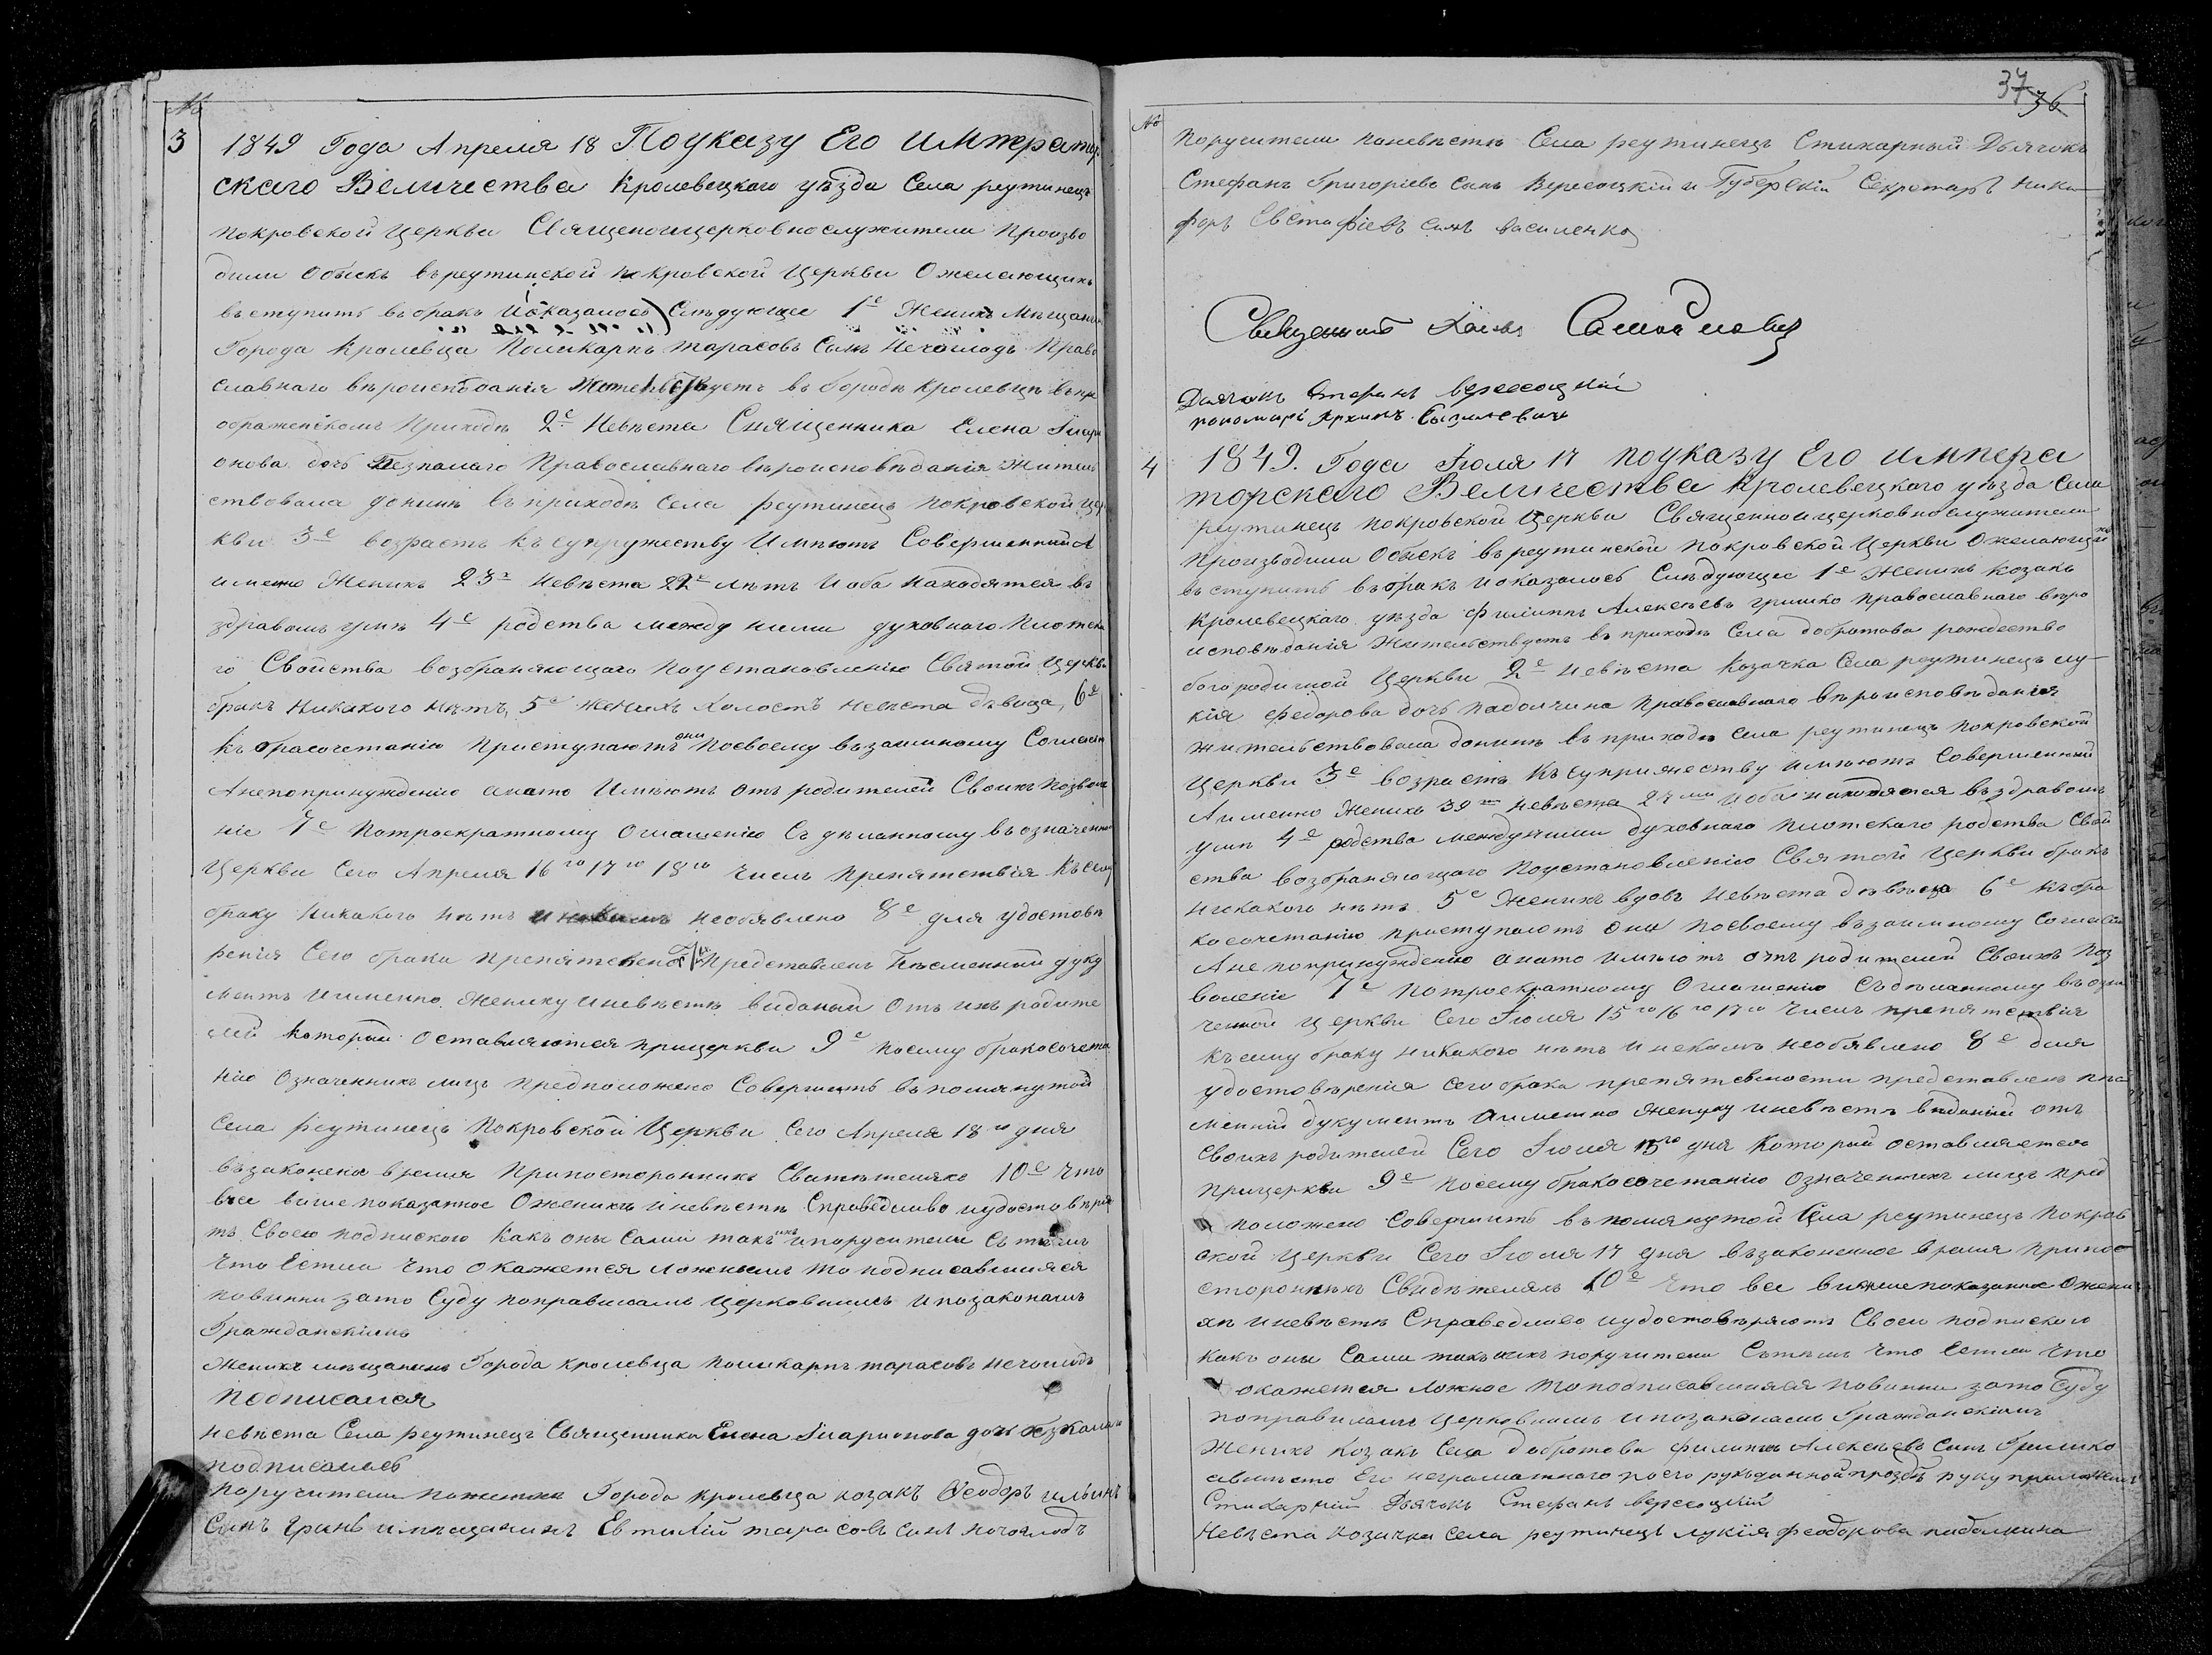 №
3
1849 Года Апреля 18 Поуказу Его Император
скаго Величества Кролевецкого уѣзда Села реутинецъ
покровской церкви Священоицерковнослужители Произво
дили Обыскъ въреутинской покровской Церкви Ожелающихъ
вступить вбракъ Иоказалось Слѣдующее 1е Женихъ Мѣщанин
Города Кролевца Поликарпъ тарасовъ Сынъ Нечаглодъ Право
славнаго вѣроисповѣданія Жительствуетъ въ Городѣ Кролевцѣ въпре
ображенскомъ Приходѣ 2е Невѣста Священника Елена Илари
онова дочь Православнаго вѣроисповѣданія Житель
ствовала донынѣ въприходѣ Села реутинецъ покровской цер
кви 3е возрастъ къ супружеству Имѣютъ Совершенный А
именно Женихъ 23х невѣста 22х лѣтъ И оба находятся въ
здравомъ умѣ 4е родства между ними духовного Плотска
го Свойства возбраняющаго Поустановленію Святой Церкви
бракъ Никакого нѣтъ, 5е Женихъ Холостъ невѣста дѣвица, 6е
къ бракосчетанію Приступаютъ они Посвоему взаимному Согласію
Анепопринужденію анато Имѣютъ отъ родителей Своихъ Позволе
ніе 7е Потроекратному Оглашенію Сдѣланному въозначенной
Церкви Сего Апреля 16го 17го 18го Числъ Препятствія Късему
браку Никакого нѣтъ необявлено 8е для удостовѣ
ренія Сего брака Представленъ Писменный доку
ментъ Иименно Жениху иневѣстѣ виданый Отъ ихъ родите
лей который Оставляются прицеркви 9е Посему бракосочета
нію Означенныхъ лицъ предположено Совершить въпомянутой
Села реутинецъ Покровской Церкви Сего Апреля 18го дня
възаконное время Припостороннихъ Свидѣтеляхъ 10е Что
все више показанное Оженихѣ иневѣстѣ Справедливо иудостовѣря
тъ Своею подпискою Какъ оны Сами такъ ихъ ипоручители Съ тѣмъ
Что Естли Что окажется Ложнымъ то подписавшияся
повинни зато Суду поправиламъ церковнымъ ипозаконамъ
Гражданскимъ
Женихъ мѣщанинъ Города Кролевца поликарпъ тарасовъ нечоглодъ
подписался
невѣста Села реутинецъ Священника Елена Иларионова дочь
подписалась
поручители Города Кролевца козакъ Феодоръ ильинъ
Синъ гринь имѣщанинъ Евтихій тарасовъ синъ
37 36
№
Поручители поневѣстѣ Села реутинецъ Стихарный Дьячокъ
Стефанъ Григоріевъ Сынъ Вересоцкій и Губерскій Секретарь Ники
форъ Евстафіевъ Сынъ василенко
Священникъ
Дьячокъ Стефанъ вересоцкій
пономарь Архипъ
4
1849. Года Іюля 17 поуказу Его импера
торскаго Величества Кролевецкого уѣзда Села
реутинецъ покровской Церкви Священноицерковнослужители
Производили Обыскъ въреутинской Покровской Церкви Ожелающихъ
вступить вбракъ иоказалось Слѣдующее 1е Женихъ козакъ
Кролевецкого уѣзда Филипъ Алексѣевъ гришко православнаго вѣро
исповѣданія Жительствуетъ въ приходѣ Села добротова рождество
богородичной Церкви 2е Невѣста Козачка Села реутинецъ лу-
кія федорова дочь Православнаго вѣроисповѣданія
жительствовала донинѣ въ приходѣ Села реутинецъ покровской
Церкви 3е возрастъ Къ супружеству имѣютъ Совершенный
Аименно Женихъ 39 невѣста 27 Иоба находятся въздравомъ
умѣ 4е родства междуними духовнаго плотскаго родства Свой
ства возбраняющаго Поустановленію Святой Церкви бракъ
никакого нѣтъ 5е Женихъ вдовъ Невѣста дѣвица 6е къбра
косочетанію приступаютъ они посвоему взаимному согласію
Анепопринужденію анато имѣютъ отъ родителей Своихъ поз
воленіе 7е потроекратному Оглашенію Сдѣланному въозна
ченной Церкви Сего Іюля 15го 16го 17го Числъ препятствія
къ сему браку никакого нѣтъ инекимъ необявлено 8е для
удостовѣренія сего брака представленъ пис
менний дукументъ аименно Жениху иневѣстѣ виданій отъ
Своихъ родителей Сего Іюля 15го дня Который оставляется
прицеркви 9е посему бракосочетанію означенныхъ лицъ пред
положено совершить въпомянутой Села реутинецъ покров
ской церкви Сего Іюля 17 дня възаконенное время припо
стороннихъ Свидѣтеляхъ 10е Что все вишепоказанное Ожени
хѣ иневѣстѣ Справедливо иудостовѣряютъ Своею подпискою
какъ оны Сами такъ ихъ поручители Сътѣмъ Что Естли Что
окажется ложное То подписавшияся повинни зато Суду
поправиламъ церковнимъ ипозаконамъ Гражданскимъ
Женихъ козакъ Села добротова филипъ Алексѣевъ Синъ Гришко
авмѣсто Его неграматнаго поего рукоданной прозбѣ руку приложилъ
Стихарній Дьячокъ Стефанъ вересоцкій
Невѣста козачка села реутинецъ лукія феодорова